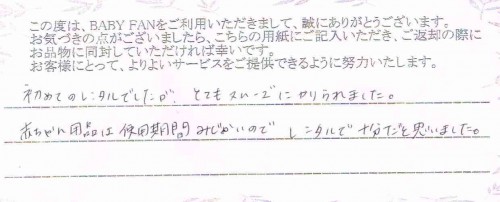 この度は、BABY FANをご利用いただきまして、誠にありがとうございます。
お気づきの点がございましたら、こちらの用紙にご記入いただき、ご返却の際に
お品物に同封していただければ幸いです。
お客様にとって、よりよいサービスをご提供できるように努力いたします。
初めてのレンタルでしたが、とてもスムーズにかりられました。
赤ちゃん用品は使用期間みじかいので レンタルで十分だと思いました。